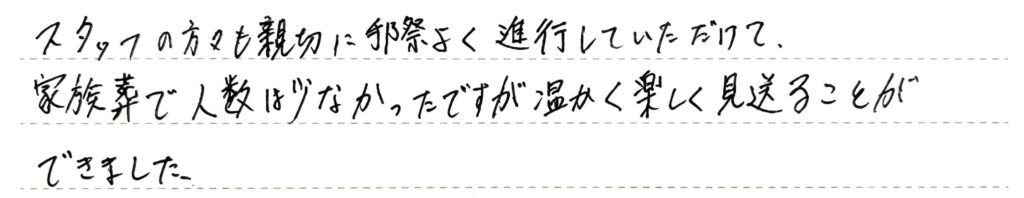 スタッフの方々も親切に手際よく進行していただけて、
家族葬で人数は少なかったですが温かく楽しく見送ることが
できました。